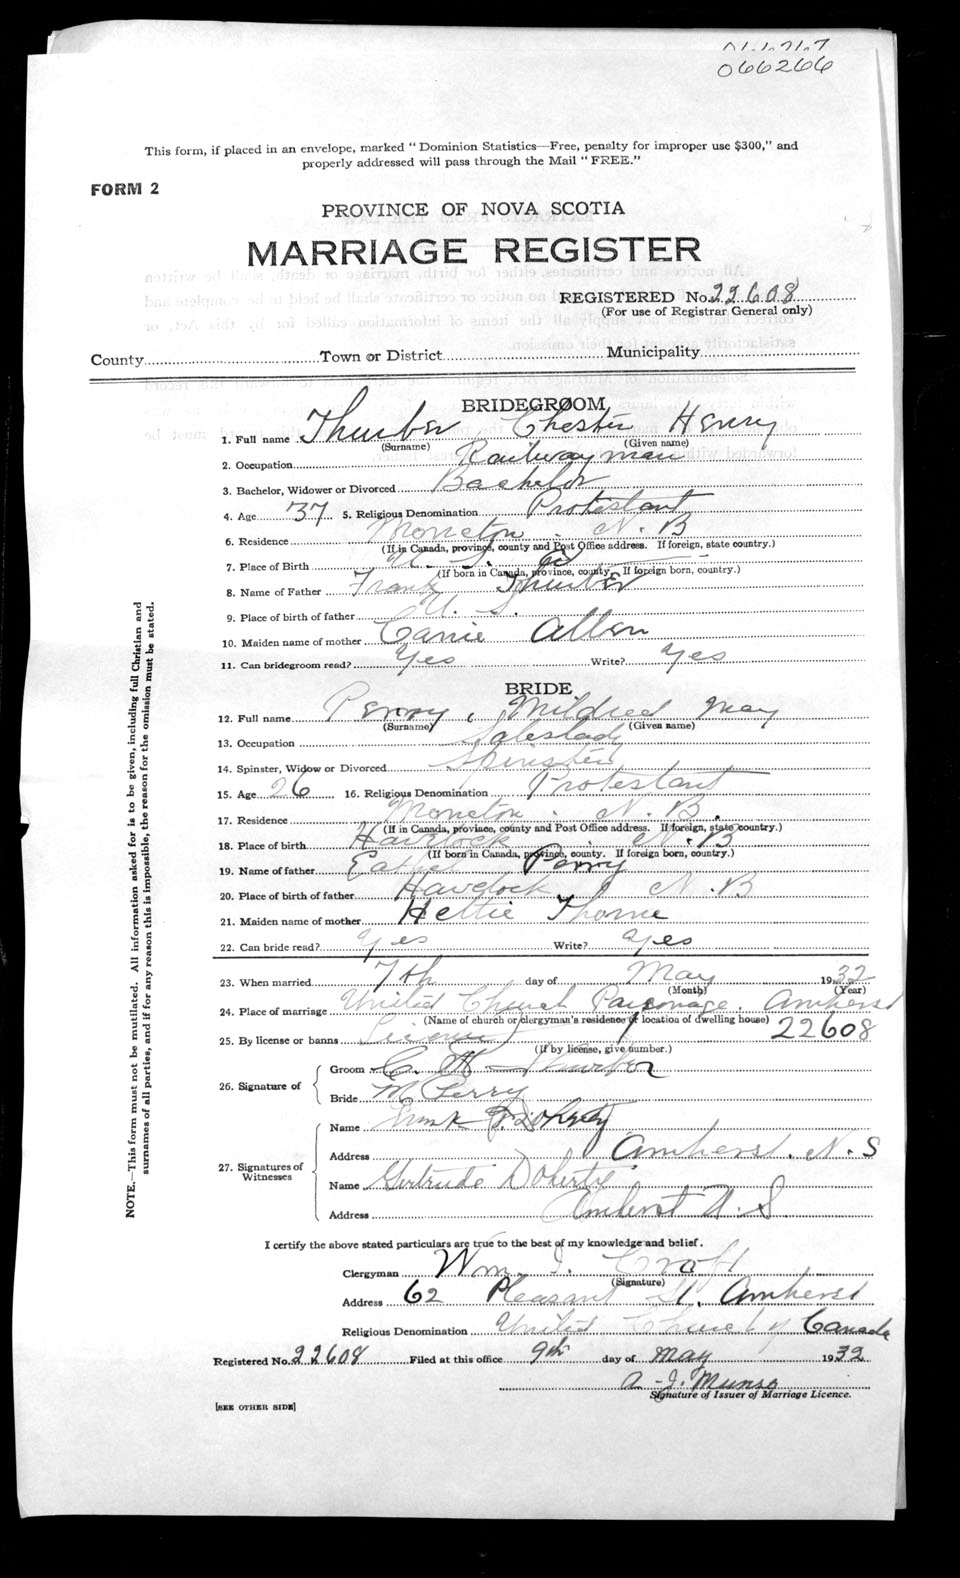 066266
This form, if placed in an envelope, marked "Dominion Statistics—Free, penalty for improper use $300," and
properly addressed will pass through the Mail "FREE."
FORM 2
PROVINCE OF NOVA SCOTIA
MARRIAGE REGISTER
REGISTERED No. 22608
(For use of Registrar General only)
County Town or District Municipality
BRIDEGROOM
1. Full name Thurber Chester Henry
(Surname) (Given name)
2. Occupation Railwayman
3. Bachelor, Widower or Divorced Bachelor
4. Age 37 5. Religious Denomination Protestant
6. Residence Moncton . N. B
(If in Canada, province, county and Post Office address. If foreign, state country.)
7. Place of Birth U. S. a
(If born in Canada, province, county If foreign born, country.)
8. Name of Father Frank Thurber
9. Place of birth of father U. S.
10. Maiden name of mother Carrie Allen
11. Can bridegroom read? Yes Write? Yes
BRIDE
12. Full name Perry, Mildred May
(Surname) (Given name)
13. Occupation Saleslady
14. Spinster, Widow or Divorced Spinster
15. Age 26 16. Religious Denomination Protestant
17. Residence Moncton . N. B.
(If in Canada, province, county and Post Office address. If foreign, state country.)
18. Place of birth Havelock N. B
(If born in Canada, province, county. If foreign born, country.)
19. Name of father Perry
20. Place of birth of father Havelock N. B
21. Maiden name of mother Hettie Thorne
22. Can bride read? Yes Write? Yes
23. When married 7th day of May 1932
(Month) (Year)
24. Place of marriage United Church Parsonage. Amherst
(Name of church or clergyman's residence or location of dwelling house)
25. By license or banns License 22608
(If by license, give number.)
26. Signature of
Groom C. H. Thurber
Bride M Perry
27. Signatures of Witnesses
Name Frank Doherty
Address Amherst. N. S
Name Gertrude Doherty.
Address Amherst N. S.
I certify the above stated particulars are true to the best of my knowledge and belief.
Clergyman Wm. I. Croft
(Signature)
Address 62 Pleasant St. Amherst
Religious Denomination United Church of Canada
Registered No. 22608 Filed at this office 9th day of May 1932
A. J. Munro
Signature of Issuer of Marriage Licence.
[SEE OTHER SIDE]
NOTE.—This form must not be mutilated. All information asked for is to be given, including full Christian and
surnames of all parties, and if for any reason this is impossible, the reason for the omission must be stated.